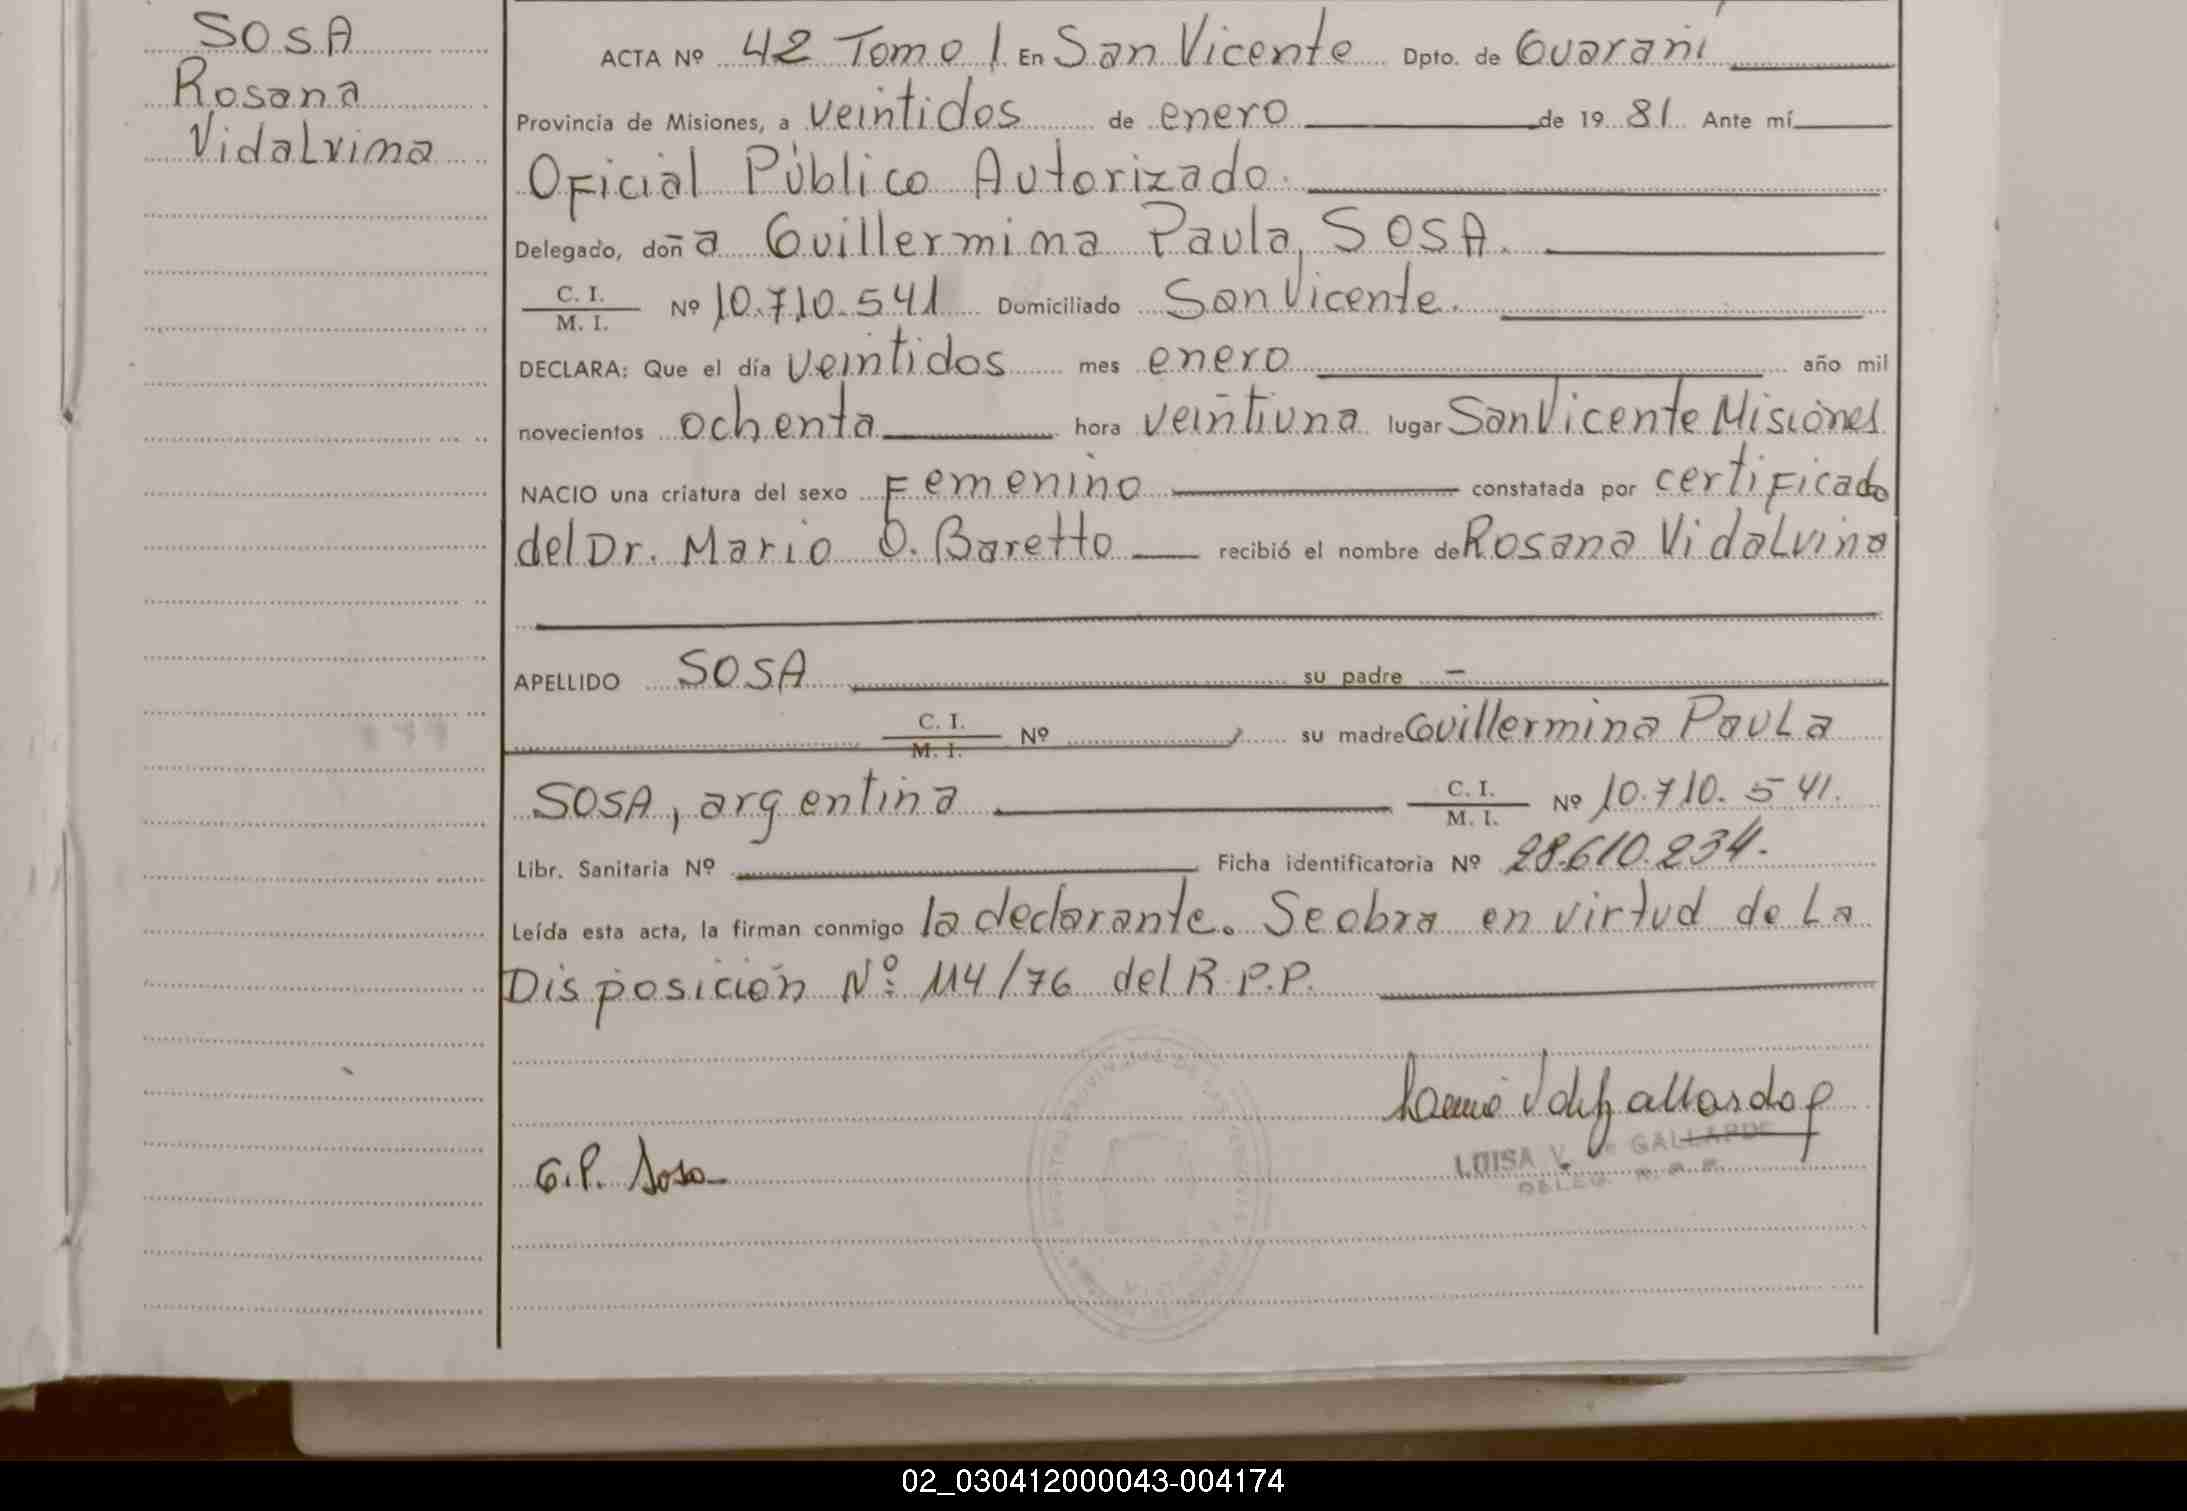 SOSA
Rosana
Vidalvina
ACTA Nº 42 Tomo I En San Vicente Dpto. de Guaraní
Provincia de Misiones, a veintidos de enero de 1981 Ante mí
Oficial Público Autorizado.
Delegado, doña Guillermina Paula SOSA.
C. I.
M. I. Nº 10.710.541 Domiciliado San Vicente.
DECLARA: Que el día veintidos mes enero año mil
novecientos ochenta hora veintiuna lugar San Vicente Misiones
NACIO una criatura del sexo Femenino constatada por certificado
del Dr. Mario O. Baretto recibió el nombre de Rosana Vidalvina
APELLIDO SOSA su padre -
C. I.
M. I. Nº su madre Guillermina Paula
SOSA, argentina C. I.
M. I. Nº 10.710.541.
Libr. Sanitaria Nº Ficha identificatoria Nº 28.610.234.
Leída esta acta, la firman conmigo la declarante. Se obra en virtud de la
Disposición Nº 114/76 del R.P.P.
G.P. Sosa
LUISA V. de GALLARDO
DELEG. R.P.P.
02_030412000043-004174